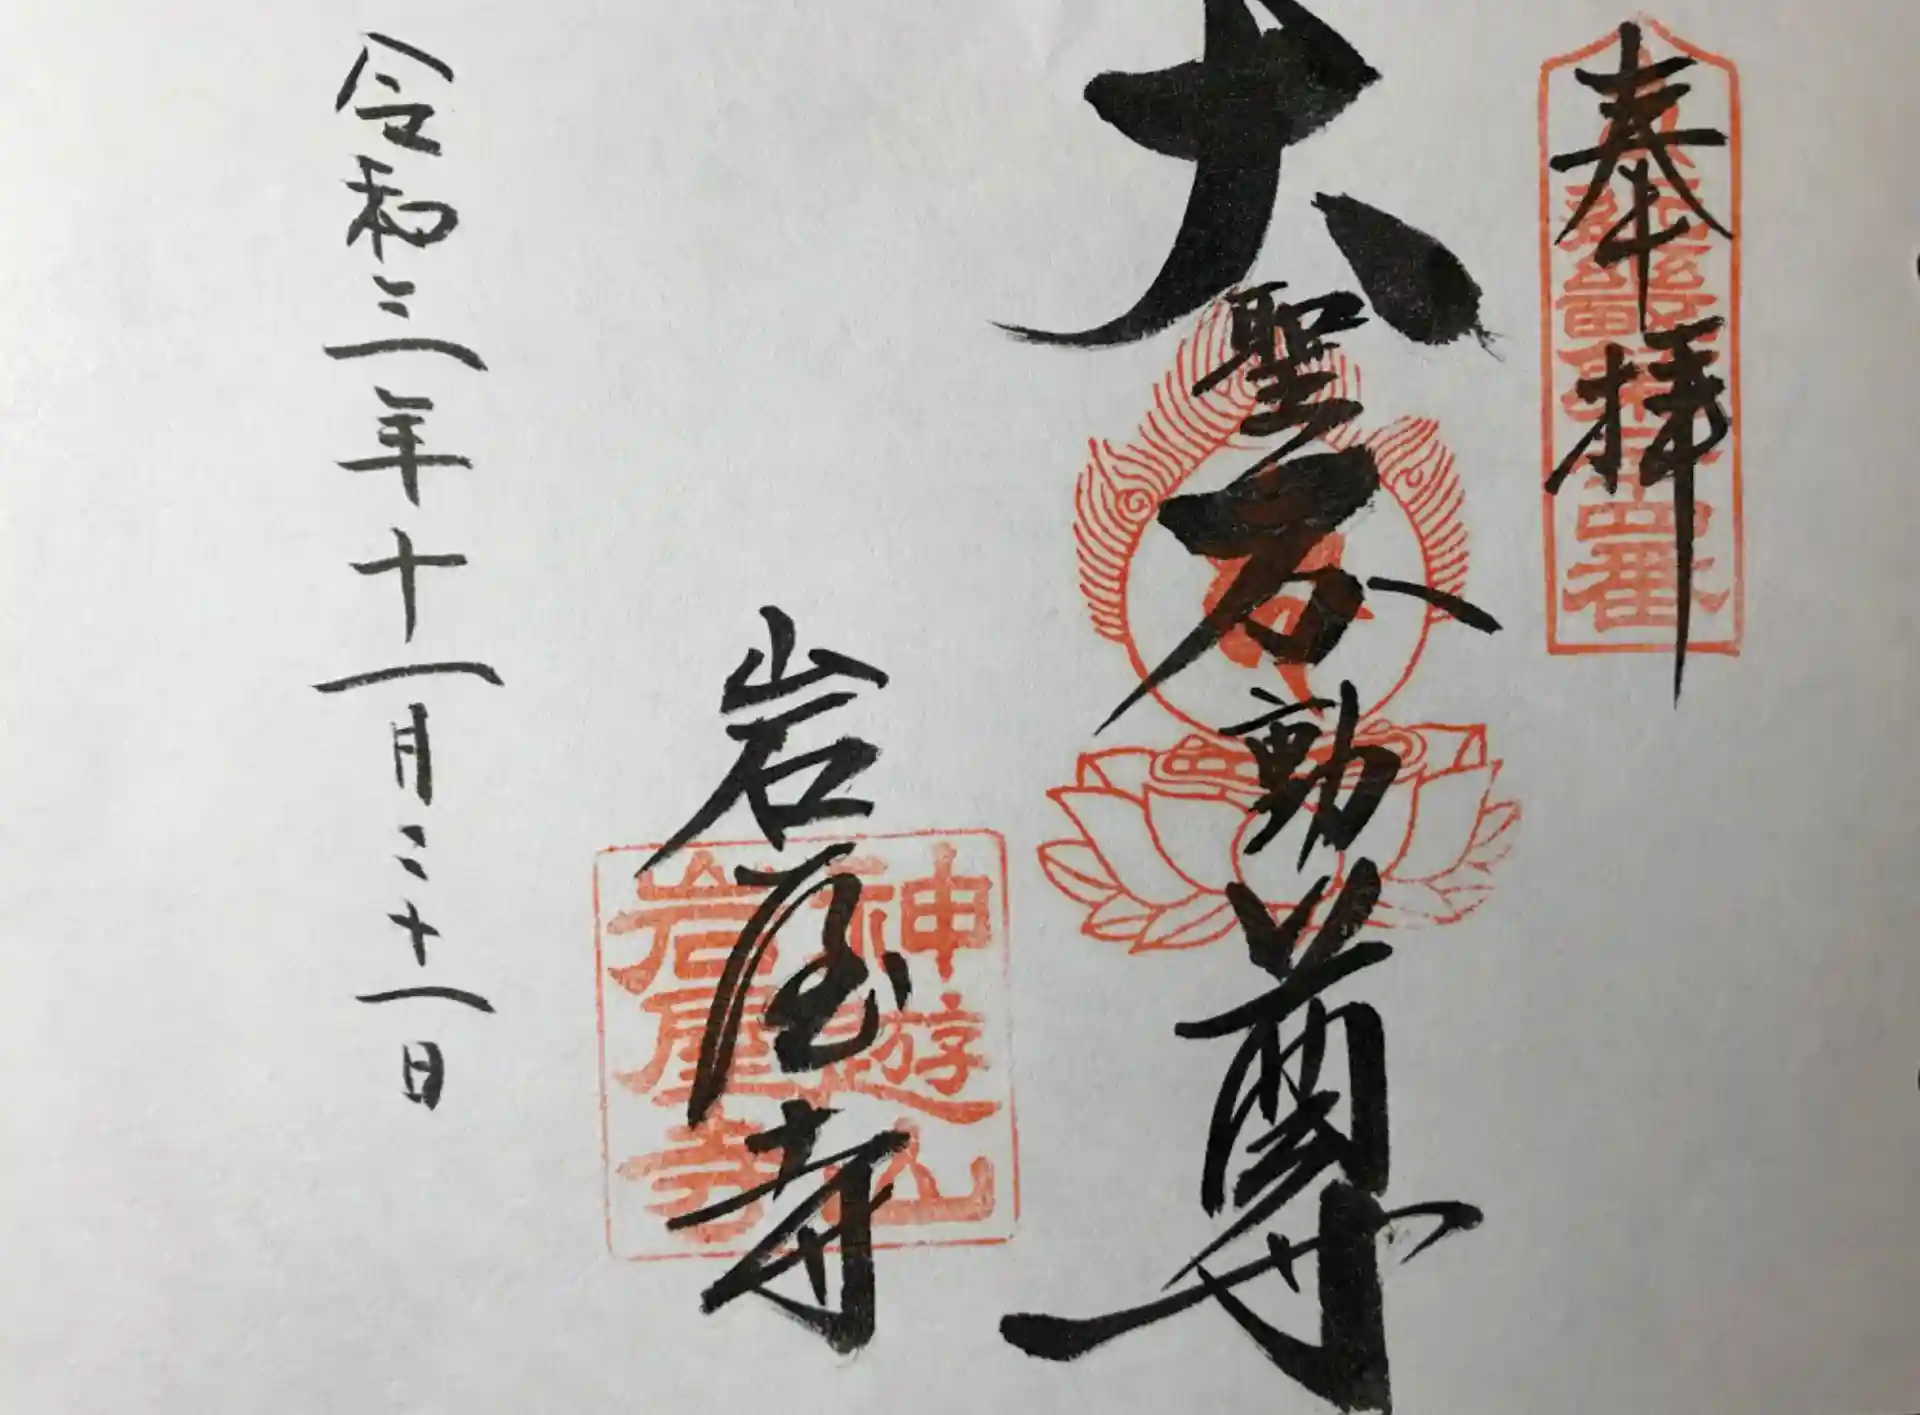 奉拝
四番
大聖不動尊
岩屋寺
神遊山
岩屋寺
令和三年十一月二十一日